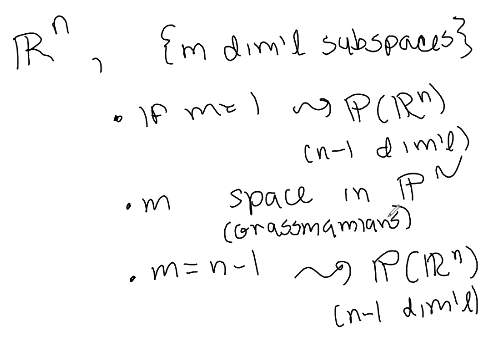 ℝⁿ, {m dim'l subspaces}
• If m=1 ⇝ ℙ(ℝⁿ)
(n-1 dim'l)
• m space in ℙᴺ
(Grassmannians)
• m=n-1 ⇝ ℙ(ℝⁿ)
(n-1 dim'l)